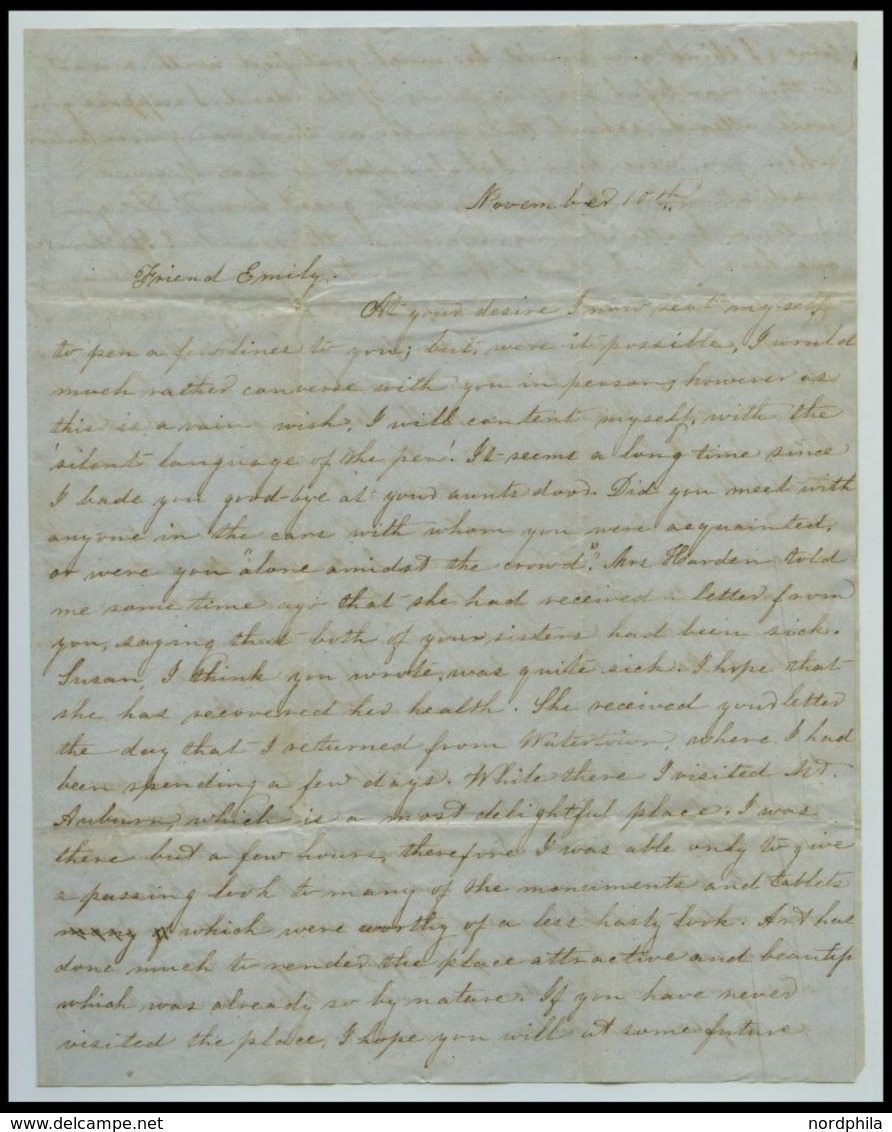 November 10th
Friend Emily.
At your desire I now seat myself
to pen a few lines to you; but, were it possible, I would
much rather converse with you in person, however as
this is a vain wish, I will content myself, with the
'silent language of the pen'. It seems a long time since
I bade you good-bye at your aunts door. Did you meet with
anyone in the cars with whom you were acquainted,
or were you "alone amidst the crowd"? Mrs Harden told
me some time ago that she had received a letter from
you, saying that both of your sisters had been sick.
Susan, I think you wrote, was quite sick. I hope that
she has recovered her health. She received your letter
the day that I returned from Watertown, where I had
been spending a few days. While there I visited Mt.
Auburn, which is a most delightful place. I was
there but a few hours, therefore I was able only to give
a passing look to many of the monuments and tablets
many which were worthy of a less hasty look. Art has
done much to render the place attractive and beautif
which was already so by nature. If you have never
visited the place, I hope you will at some future
www.delcampe.net
nordphila